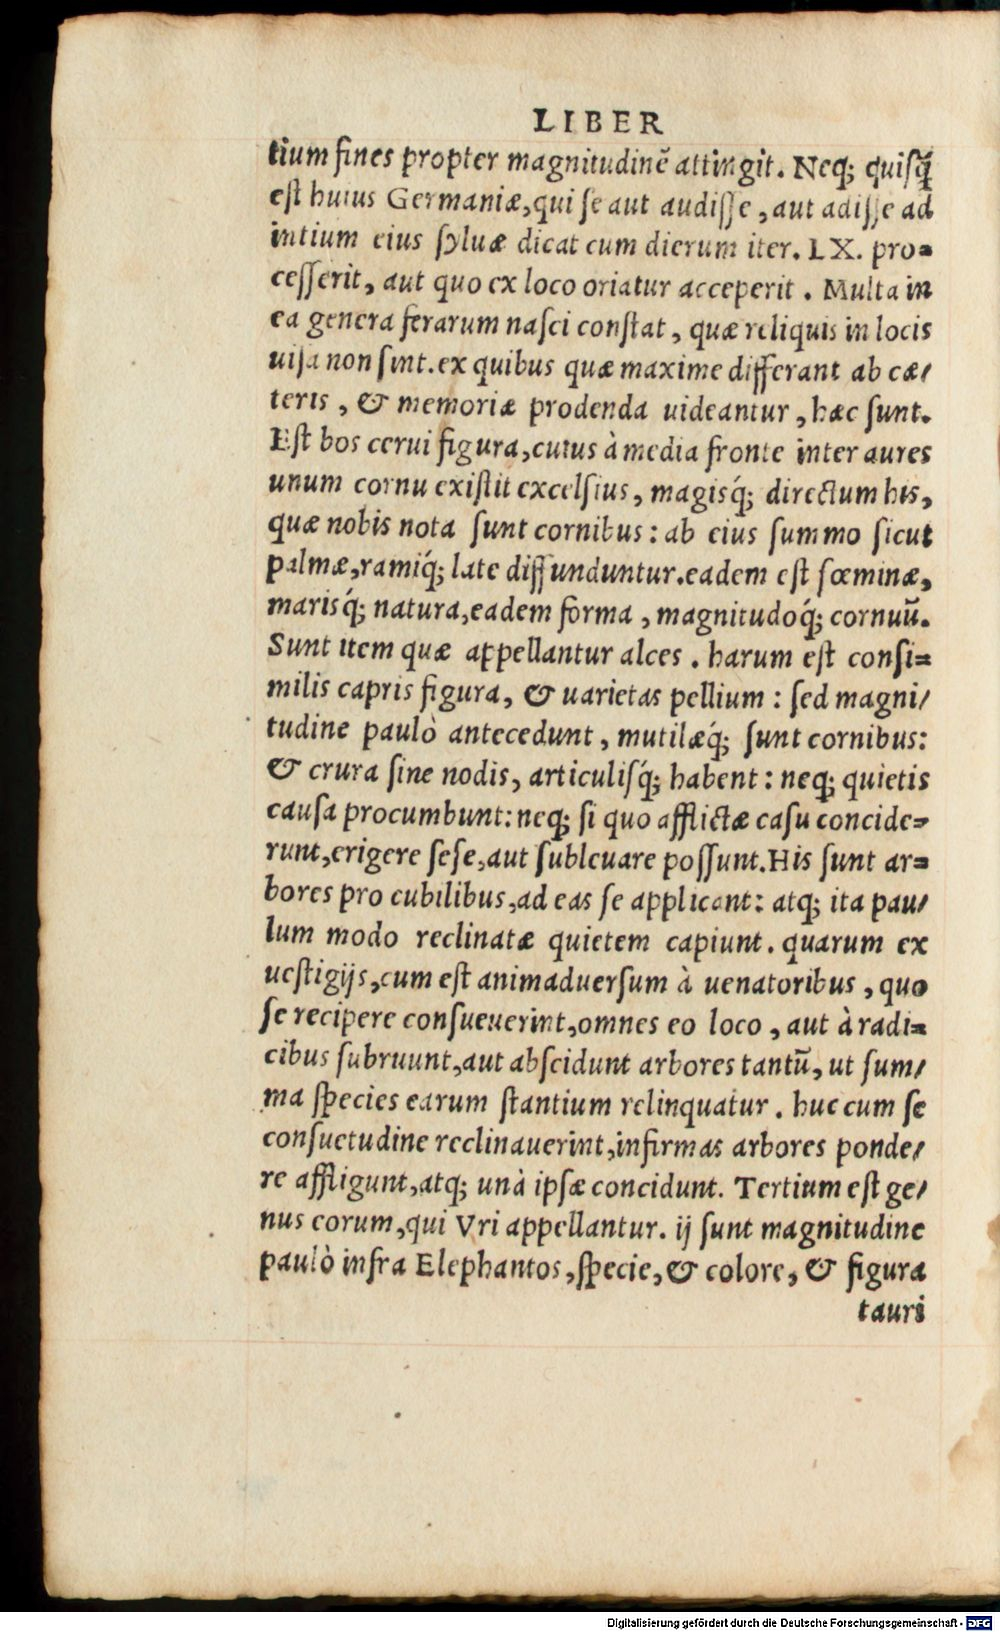 LIBER
tium fines propter magnitudinē attingit. Neq; quisq̃
est huius Germaniæ, qui se aut audisse, aut adisse ad
intium eius syluæ dicat cum dierum iter. LX. pro=
cesserit, aut quo ex loco oriatur acceperit. Multa in
ea genera ferarum nasci constat, quæ reliquis in locis
uisa non sint. ex quibus quæ maxime differant ab cæ/
teris, & memoriæ prodenda uideantur, hæc sunt.
Est bos cerui figura, cuius à media fronte inter aures
unum cornu existit excelsius, magisq́; directum his,
quæ nobis nota sunt cornibus: ab eius summo sicut
palmæ, ramiq́; late diffunduntur. eadem est fœminæ,
marisq́; natura, eadem forma, magnitudoq́; cornuū.
Sunt item quæ appellantur alces. harum est consi=
milis capris figura, & uarietas pellium: sed magni/
tudine paulò antecedunt, mutilæq́; sunt cornibus:
& crura sine nodis, articulisq́; habent: neq; quietis
causa procumbunt: neq; si quo afflictæ casu concide=
runt, erigere sese, aut subleuare possunt. His sunt ar=
bores pro cubilibus, ad eas se applicant: atq; ita pau/
lum modo reclinatæ quietem capiunt. quarum ex
uestigijs, cum est animaduersum à uenatoribus, quo
se recipere consueuerint, omnes eo loco, aut à radi=
cibus subruunt, aut abscidunt arbores tantū, ut sum/
ma species earum stantium relinquatur. huc cum se
consuetudine reclinauerint, infirmas arbores ponde/
re affligunt, atq; unà ipsæ concidunt. Tertium est ge/
nus eorum, qui Vri appellantur. ij sunt magnitudine
paulò infra Elephantos, specie, & colore, & figura
tauri
Digitalisierung gefördert durch die Deutsche Forschungsgemeinschaft - DFG